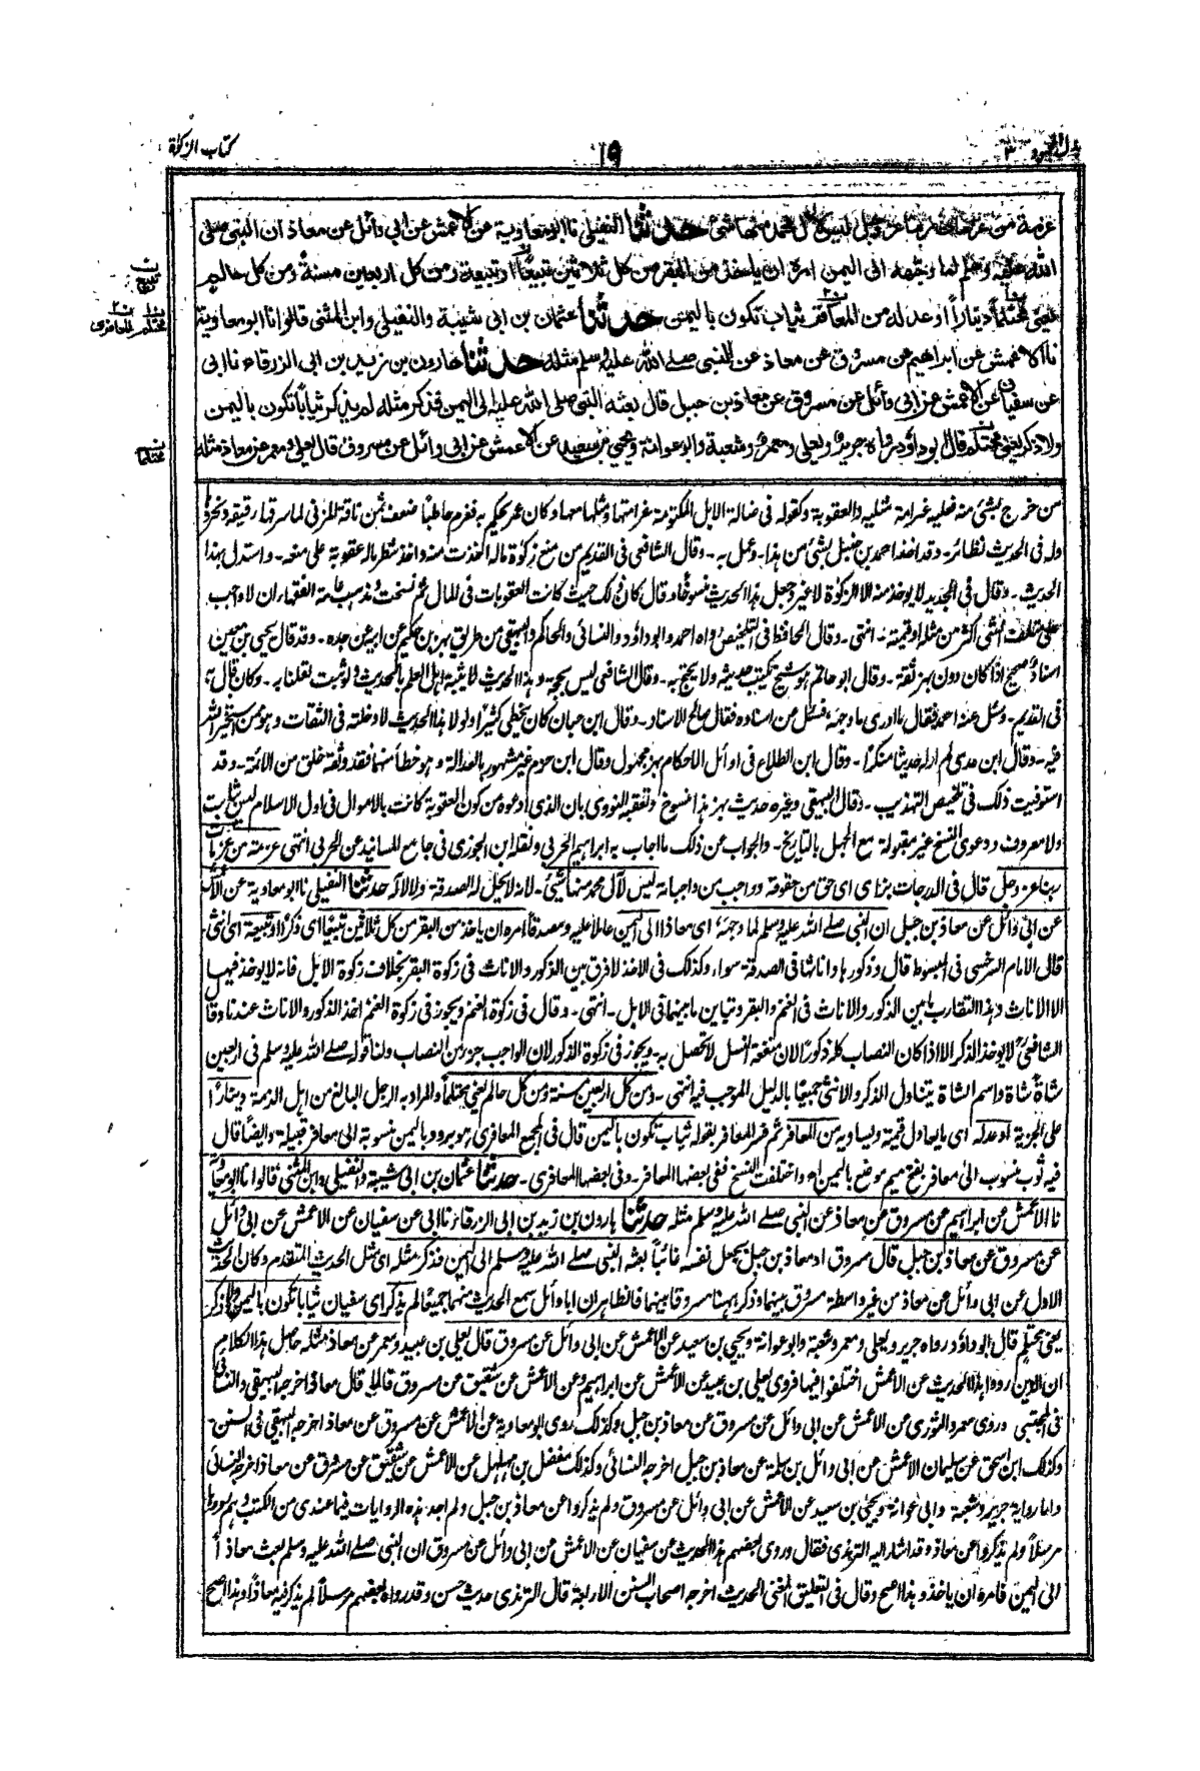 كتاب الزكوٰة
١٩
بذل المجهود ٣
عزمة من عزمات ربنا عز وجل ليس لآل محمد منها شئ حدثنا النفيلى نا ابومعاوية عن الاعمش عن ابى وائل عن معاذ ان النبى صلى
الله عليه وسلم لما وجهه الى اليمن امره ان ياخذ من البقر من كل ثلاثين تبيعاً او تبيعة ومن كل اربعين مسنةً ومن كل حالم
يعنى محتلماً ديناراً او عدله من المعافر ثياب تكون باليمن حدثنا عثمان بن ابى شيبة والنفيلى وابن المثنى قالوا نا ابو معاوية
نا الاعمش عن ابراهيم عن مسروق عن معاذ عن النبى صلے الله عليه وسلم مثله حدثنا هارون بن زيد بن ابى الزرقاء نا ابى
عن سفيان عن الاعمش عن ابى وائل عن مسروق عن معاذ بن جبل قال بعثه النبى صلى الله عليه الى اليمن فذكر مثله لم يذكر ثياباً تكون باليمن
ولا ذكر يعنى محتلم قال ابو داؤد رواه جرير ويعلى ومعمر وشعبة وابو عوانة ويحيى بن سعيد عن الاعمش عن ابى وائل عن مسروق قال يعلى ومعمر عن معاذ مثله
من خرج بشئ منه فعليه غرامة مثليه والعقوبة وكقوله فى ضالة الابل المكتومة غرامتها ومثلها معها وكان عمر يحكم به فغرم حاطباً ضعف ثمن ناقة المزنى لما سرقها رقيقه ونحروها
وله فى الحديث نظائر۔ وقد اخذ احمد بن حنبل بشئ من هذا۔ وعمل به۔ وقال الشافعى فى القديم من منع زكوٰة ماله اخذت منه واخذ شطر ماله عقوبة على منعه۔ واستدل بهذا
الحديث۔ وقال فى الجديد لا يوخذ منه الا الزكوٰة لا غير وجعل هذا الحديث منسوخاً وقال كان ذلك حيث كانت العقوبات فى المال ثم نسخت ومذهب عامة الفقهاء ان لا واجب
على متلف الشئ اكثر من مثله او قيمته۔ انتهى۔ وقال الحافظ فى التلخيص رواه احمد وابوداؤد والنسائى والحاكم والبيهقى من طريق بهز بن حكيم عن ابيه عن جده۔ وقد قال يحيى بن معين
اسناد صحيح اذا كان دون بهز ثقة۔ وقال ابو حاتم هو شيخ يكتب حديثه ولا يحتج به۔ وقال الشافعى ليس بحجة وهذا الحديث لا يثبته اهل العلم بالحديث ولو ثبت لقلنا به۔ وكان قال به
فى القديم۔ وسئل عنه احمد فقال ما ادرى ما وجهه فسئل عن اسناده فقال صالح الاسناد۔ وقال ابن حبان كان يخطى كثيراً ولولا هذا الحديث لادخلته فى الثقات وهو ممن استخير الله
فيه۔ وقال ابن عدى لم ار له حديثا منكراً۔ وقال ابن الطلاع فى اوائل الاحكام بهز مجهول وقال ابن حزم غير مشهور بالعدالة وهو خطأ منهما فقد وثقه خلق من الائمة۔ وقد
استوفيت ذلك فى تلخيص التهذيب۔ وقال البيهقى وغيره حديث بهز هذا منسوخ وتعقبه النووى بان الذى ادعوه من كون العقوبة كانت بالاموال فى اول الاسلام ليس بثابت
ولا معروف ودعوى النسخ غير مقبولة مع الجهل بالتاريخ۔ والجواب عن ذلك ما اجاب به ابراهيم الحربى ونقله ابن الجوزى فى جامع المسانيد عن الحربى انتهى عزمة من عزمات
ربنا عز وجل قال فى الدرجات بزاى اى حق من حقوقه وواجب من واجباته ليس لآل محمد منها شئ۔ لانه لا يحل له الصدقة ولا لآله حدثنا النفيلى نا ابو معاوية عن الاعمش
عن ابى وائل عن معاذ بن جبل ان النبى صلے الله عليه وسلم لما وجهه اى معاذا الى اليمن عاملا عليه ومصدقاً امره ان ياخذ من البقر من كل ثلاثين تبيعًا اى ذكراً او تبيعة اى انثى
قال الامام السرخسى فى المبسوط قال وذكورها واناثها فى الصدقة سواء وكذلك فى الاخذ لا فرق بين الذكور والاناث فى زكوة البقر بخلاف زكوة الابل فانه لا يوخذ فيها
الا الاناث وهذا لتقارب ما بين الذكور والاناث فى الغنم والبقر وتباين ما بينهما فى الابل۔ انتهى۔ وقال فى زكوٰة الغنم ويجوز فى زكوٰة الغنم اخذ الذكور والاناث عندنا وقال
الشافعىؒ لا يوخذ الذكر الا اذا كان النصاب كله ذكورًا لان منفعة النسل لا تحصل به۔ ويجوز فى زكوٰة الذكور لان الواجب جزء من النصاب ولنا قوله صلے الله عليه وسلم فى اربعين
شاةً شاة واسم الشاة يتناول الذكر والانثى جميعًا بالدليل الموجب فيه انتهى۔ ومن كل اربعين مسنة ومن كل حالم يعنى محتلماً والمراد به الرجل البالغ من اهل الذمة دينارًا
على الجزية او عدله اى ما يعادل قيمته ويساويه من المعافر ثم فسر المعافر بقوله ثياب تكون باليمن قال فى المجمع المعافرى هو برود باليمن منسوبة الى معافر قبيلة وايضًا قال
فيه ثوب منسوب الى معافر بفتح ميم موضع باليمن اه واختلفت النسخ ففى بعضها المعافر۔ وفى بعضها المعافرى۔ حدثنا عثمان بن ابى شيبة والنفيلى وابن المثنى قالوا نا ابو معاوية
نا الاعمش عن ابراهيم عن مسروق عن معاذ عن النبى صلے الله عليه وسلم مثله حدثنا هارون بن زيد بن ابى الزرقاء نا ابى عن سفيان عن الاعمش عن ابى وائل
عن مسروق عن معاذ بن جبل قال مسروق او معاذ بن جبل يجعل نفسه غائباً بعثه النبى صلے الله عليه وسلم الى اليمن فذكر مثله اى مثل الحديث المتقدم وكان الحديث
الاول عن ابى وائل عن معاذ من غير واسطة مسروق بينهما وذكر ههنا مسروقا بينهما فالظاهر ان ابا وائل سمع الحديث منهما جميعًا لم يذكر اى سفيان ثيابا تكون باليمن ولا ذكر
يعنى محتلم قال ابو داؤد رواه جرير ويعلى ومعمر وشعبة وابو عوانة ويحيى بن سعيد عن الاعمش عن ابى وائل عن مسروق قال يعلى بن عبيد ومعمر عن معاذ مثله حاصل هذا الكلام
ان الذين رووا هذا الحديث عن الاعمش اختلفوا فيها فروى يعلى بن عبيد عن الاعمش عن ابراهيم وعن الاعمش عن شقيق عن مسروق قالا قال معاذ اخرجه البيهقى والنسائى
فى المجتبى وروى معمر والثورى عن الاعمش عن ابى وائل عن مسروق عن معاذ بن جبل وكذلك روى ابو معاوية عن الاعمش عن مسروق عن معاذ اخرجه البيهقى فى السنن۔
وكذلك ابن اسحق عن سليمان الاعمش عن ابى وائل بن سلمة عن معاذ بن جبل اخرجه النسائى وكذلك مفضل بن مهلهل عن الاعمش عن شقيق عن مسروق عن معاذ اخرجه النسائى
واما رواية جرير وشعبة وابى عوانة ويحيى بن سعيد عن الاعمش عن ابى وائل عن مسروق ولم يذكروا عن معاذ بن جبل ولم اجد هذه الروايات فيما عندى من الكتب
مرسلاً ولم يذكروا عن معاذ وقد اشار اليه الترمذى فقال وروى بعضهم هذا الحديث عن سفيان عن الاعمش عن ابى وائل عن مسروق ان النبى صلے الله عليه وسلم بعث معاذ اً
الى اليمن فامره ان ياخذ وهذا اصح وقال فى التعليق المغنى الحديث اخرجه اصحاب السنن الاربعة قال الترمذى حديث حسن وقد رواه بعضهم مرسلاً لم يذكر فيه معاذاً وهذا اصح